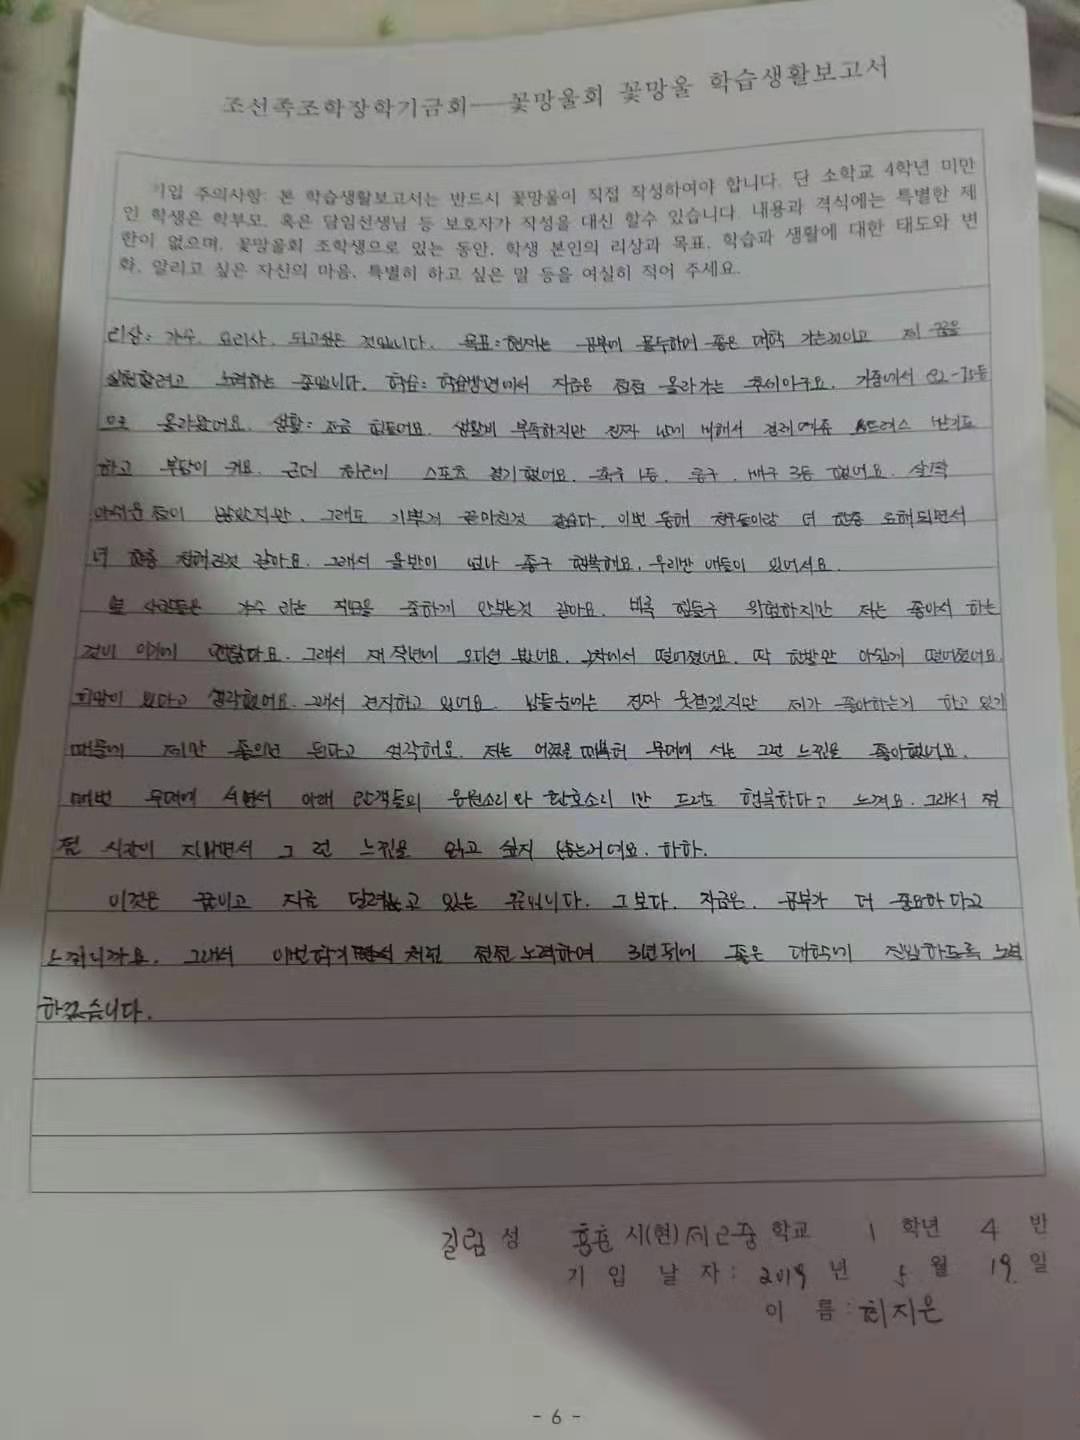 조선족조학장학기금회——꽃망울회 꽃망울 학습생활보고서
기입 주의사항: 본 학습생활보고서는 반드시 꽃망울이 직접 작성하여야 합니다. 단 소학교 4학년 미만
인 학생은 학부모, 혹은 담임선생님 등 보호자가 작성을 대신 할수 있습니다. 내용과 격식에는 특별한 제
한이 없으며, 꽃망울회 조학생으로 있는 동안, 학생 본인의 리상과 목표, 학습과 생활에 대한 태도와 변
화, 알리고 싶은 자신의 마음, 특별히 하고 싶은 말 등을 여실히 적어 주세요.
리상: 가수. 요리사. 되고싶은 것입니다. 목표: 현재는 공부에 몰두하여 좋은 대학 가는것이고 제 꿈을
실현할려고 노력하는 중입니다. 학습: 학습방면에서 지금은 점점 올라가는 추이아구요. 기중에서
으로 올라왔어요. 생활: 조금 힘들어요. 생활비 부족하지만 진짜 비해서 받기도
하고 부담이 커요. 근데 스포츠 경기했어요. 축구 1등. 롱구. 배구 3등 했어요. 살짝
아쉬운점이 많았지만. 그래도 기쁘게 끝마친것 같습다. 이번 통해 친구들이랑 더 한층 료해되면서
더 한층 친해진것 같아요. 그래서 올반이 넘나 좋구 행복해요. 우리반 애들이 있어서요.
사람들은 가수 라는 직업을 중하게 안보는것 같아요. 비록 힘들구 위험하지만 저는 좋아서 하는
것이 이게 그래서 재작년에 오디션 봤어요. 2차에서 떨어졌어요. 딱 한발만 아쉽게 떨어졌어요.
희망이 있다고 생각했어요. 그래서 견지하고 있어요. 남들눈에는 진짜 웃기겠지만 제가 좋아하는거 하고 있기
때문에 제만 좋으면 된다고 생각해요. 저는 어렸을때부터 무대에 서는 그런 느낌을 좋아했어요.
매번 무대에 서면서 아래 관객들의 응원소리와 환호소리 만 드려도 행복하다고 느껴요. 그래서 점
점 시간이 지나면서 그 런 느낌을 잃고 싶지 않는거예요. 하하.
이것은 꿈이고 지금 달려가고 있는 꿈입니다. 그보다. 지금은. 공부가 더 중요하다고
느껴니까요. 그래서 이번학기 점점 노력하여 3년뒤에 좋은 대학에 진입하도록 노력
하겠습니다.
길림 성 훈춘 시(현) 제2중 학교 1 학년 4 반
기 입 날 자: 2019 년 5 월 19 일
이 름: 최지은
- 6 -